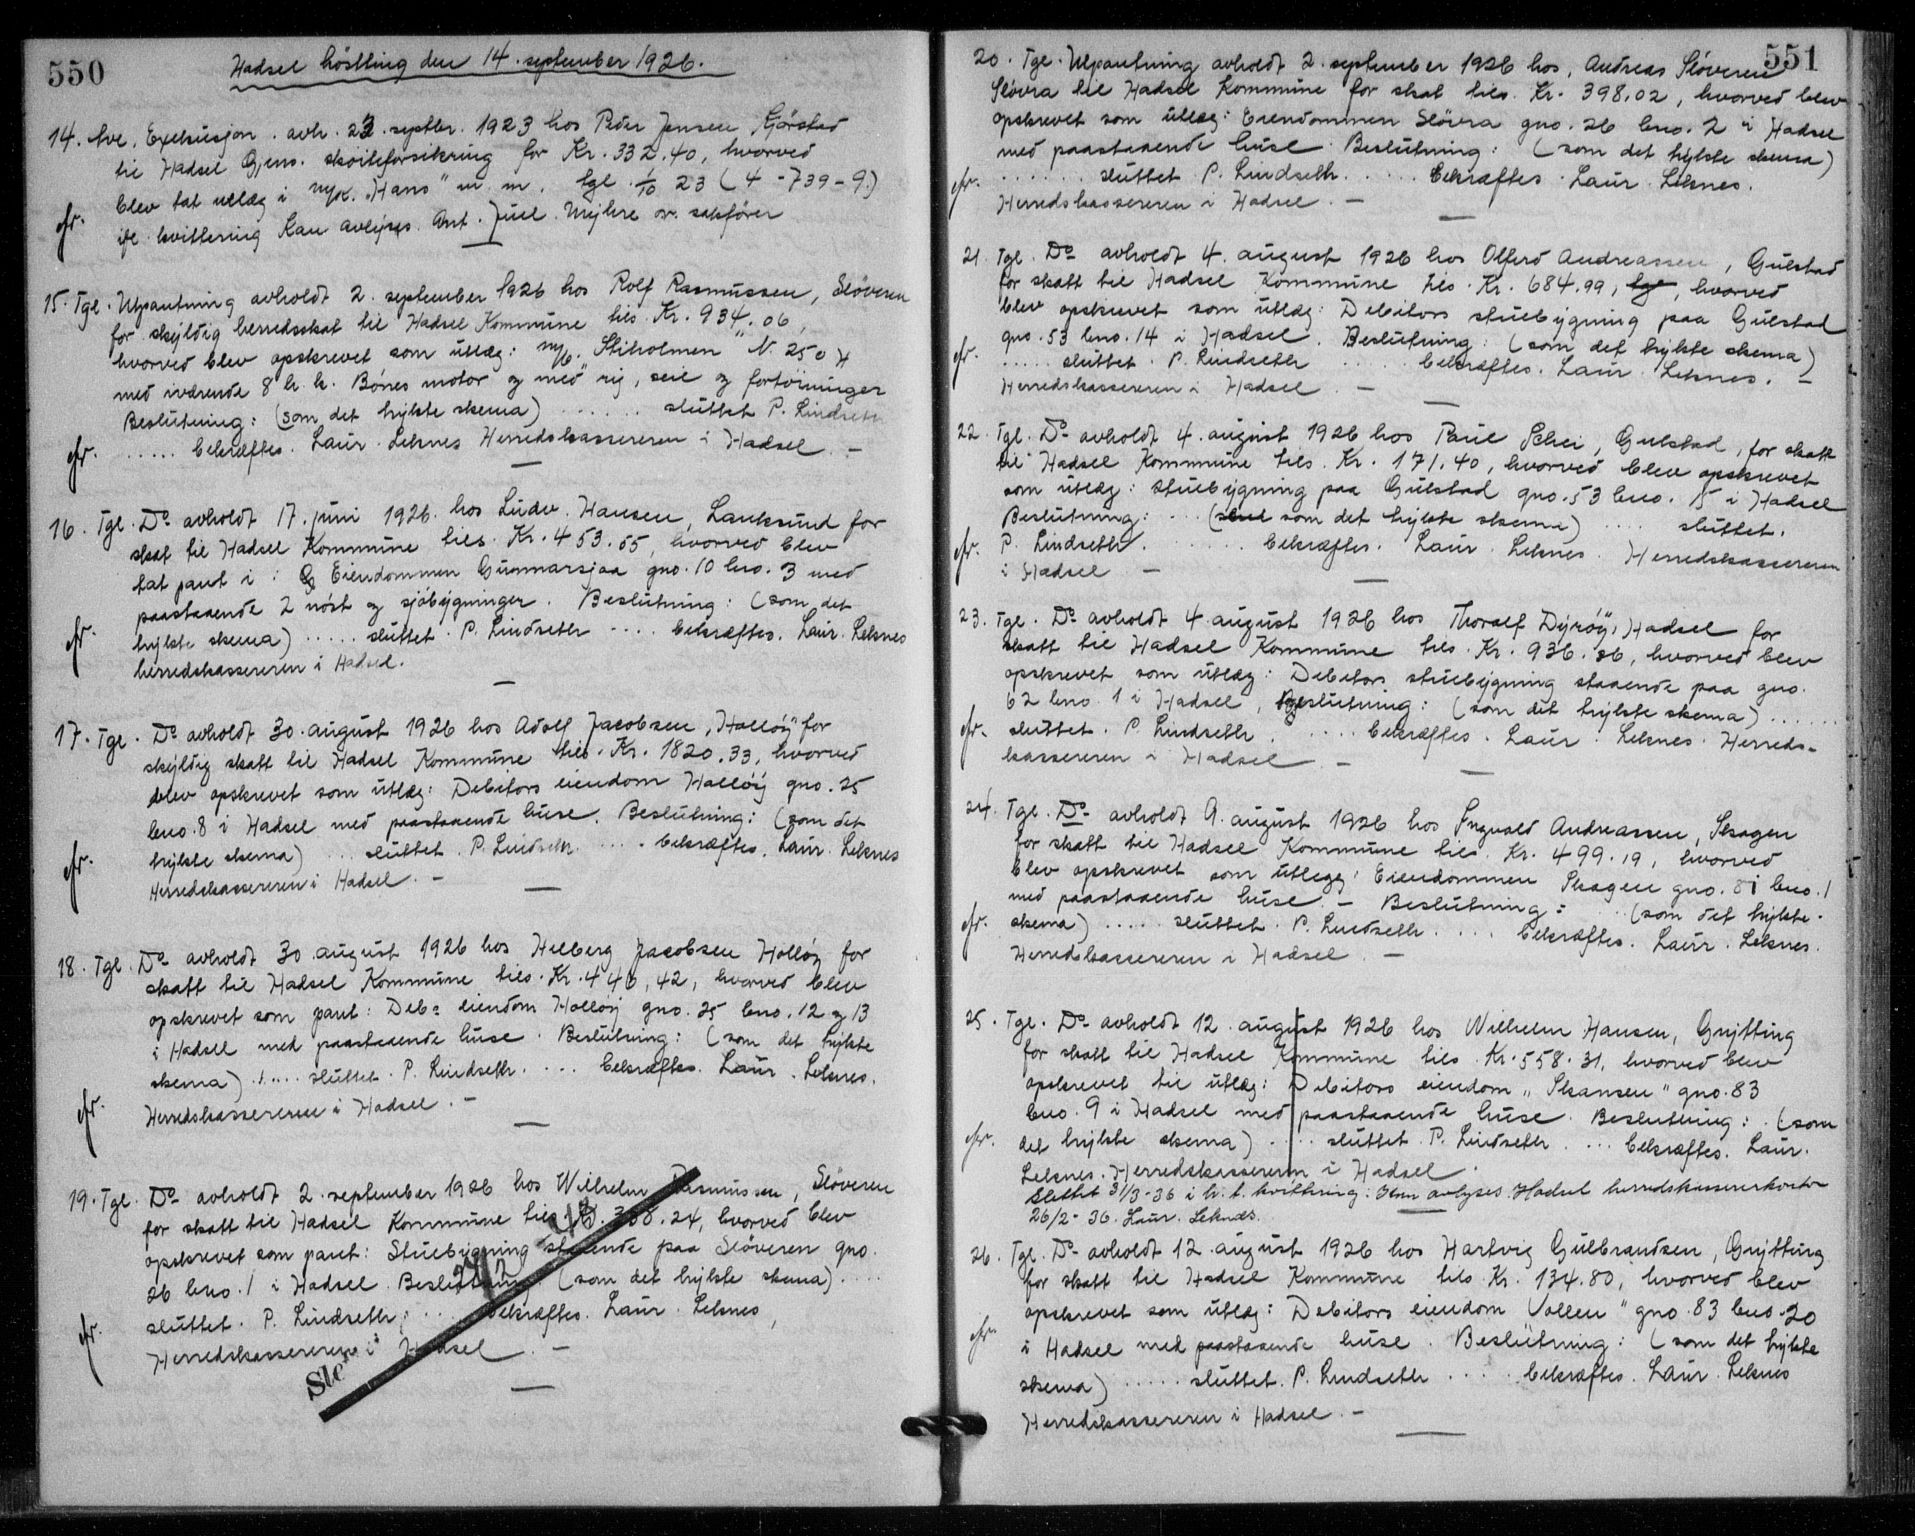 550
Hadsel höstting den 14. september 1926.
14. Ave. Exekusjon. avh. 22. septbr. 1923 hos Peder Jensen
til Hadsel Gjens. skøiteforsikring for Kr. 332.40, hvorved
blev tat utlæg i m/k. "Hans" m. m. tgl 1/10 23 (4-739-9.)
ifl. kvittering Kan avlyses. Ant. Juel Mejhre or. sakfører
15. Tgl. Utpantning avholdt 2. september 1926 hos Rolf Rasmussen, Slöveren
for skyldig herredsskat til Hadsel Kommune tils. Kr. 934.06,
hvorved blev opskrevet som utlæg: m/b. "Stiholmen" N. 250 H
med iværende 8 h.k. Bönes motor og med rig, seil og fortöininger
Beslutning: (som det trykte skema) ...... sluttet P. Lindseth
..... bekræftes. Laur. Leknes Herredskassereren i Hadsel. -
16. Tgl. Do avholdt 17. juni 1926. hos Ludv. Hansen, Lauksund for
skat til Hadsel Kommune tils. Kr. 453.55, hvorved blev
tat pant i: Eiendommen Gunnarsjaa gno. 10 bno. 3 med
paastaaende 2 nöst og sjöbygninger. Beslutning: (som det
trykte skema) ..... sluttet. P. Lindseth .... bekræftes. Laur. Leknes
herredskassereren i Hadsel.
17. Tgl. Do avholdt 30. august 1926 hos Adolf Jacobsen, "Hallöy" for
skyldig skatt til Hadsel Kommune tils. Kr. 1820.33, hvorved
blev opskrevet som utlæg: Debitors eiendom Hallöy gno. 25
bno. 8 i Hadsel med paastaaende huse. Beslutning: (som det
trykte skema) ... sluttet. P. Lindseth .... bekræftes. Laur. Leknes
Herredskassereren i Hadsel. -
18. Tgl. Do avholdt 30. august 1926 hos Helberg Jacobsen Hallöy for
skatt til Hadsel Kommune tils. Kr. 446,42, hvorved blev
opskrevet som pant: Deb= eiendom Hallöy gno. 25 bno. 12 og 13
i Hadsel med paastaaende huse. Beslutning: (som det trykte
skema) ..... sluttet. P. Lindseth. .... bekræftes. Laur. Leknes.
Herredskassereren i Hadsel. -
19. Tgl. Do avholdt 2. september 1926 hos Wilhelm Rasmussen, Slöveren
for skatt til Hadsel Kommune tils. Kr. .24, hvorved blev
opskrevet som pant: Stuebygning staaende paa Slöveren gno.
26 bno. 1 i Hadsel. Beslutning (som det trykte skema) ....
sluttet. P. Lindseth, .... bekræftes. Laur. Leknes,
Herredskassereren i Hadsel. -
551
20. Tgl. Utpantning avholdt 2. september 1926 hos, Andreas Slöveren
Slövra til Hadsel Kommune for skat tils. Kr. 398,02, hvorved blev
opskrevet som utlæg: Eiendommen Slövra gno. 26 bno. 2 i Hadsel
med paastaaende huse. Beslutning: (som det trykte skema)
...... sluttet P. Lindseth ..... bekræftes. Laur. Leknes.
Herredskassereren i Hadsel. -
21. Tgl. Do avholdt 4. august 1926 hos Olferd Andreassen, Gulstad
for skatt til Hadsel Kommune tils. Kr. 684.99, hvorved
blev opskrevet som utlæg: Debitors stuebygning paa Gulstad
gno. 53 bno. 14 i Hadsel. Beslutning: (som det trykte skema)
..... sluttet. P. Lindseth ..... bekræftes. Laur. Leknes. -
Herredskassereren i Hadsel. -
22. Tgl. Do avholdt 4. august 1926 hos Paul Schei, Gulstad, for skatt
til Hadsel Kommune tils. Kr. 171.40, hvorved blev opskrevet
som utlæg: stuebygning paa Gulstad gno. 53 bno. 15 i Hadsel
Beslutning: .. (som det trykte skema) .... sluttet.
P. Lindseth. ...... bekræftes. Laur. Leknes. Herredskassereren
i Hadsel -
23. Tgl. Do avholdt 4. august 1926 hos Thoralf Dyröy, Hadsel for
skatt til Hadsel Kommune tils. Kr. 936.36, hvorved blev
opskrevet som utlæg: Debitors stuebygning staaende paa gno.
62 bno. 1 i Hadsel, Beslutning: (som det trykte skema) ......
sluttet. P. Lindseth. ..... bekræftes. Laur. Leknes. Herreds-
kassereren i Hadsel. -
24. Tgl. Do avholdt 9. august 1926 hos Ingvald Andreassen, Skagen
for skatt til Hadsel Kommune tils. Kr. 499.19, hvorved
blev opskrevet som utlegg, Eiendommen Skagen gno. 81 bno. 1
med paastaaende huse. - Beslutning: .. (som det trykte.
skema) ..... sluttet. P. Lindseth .... bekræftes. Laur. Leknes.
Herredskassereren i Hadsel. -
25. Tgl. Do avholdt 12. august 1926 hos Wilhelm Hansen, Grytting
for skatt til Hadsel Kommune tils. Kr. 558.31, hvorved blev
opskrevet til utlæg: Debitors eiendom "Skansen" gno. 83
bno. 9 i Hadsel med paastaaende huse. Beslutning: (som
det trykte skema) ..... sluttet. P. Lindseth. ... bekræftes. Laur.
Leknes. Herredskassereren i Hadsel.
Slettet 31/3-36 i h. t. kvittering: Kan avlyses. Hadsel herredskassererkontor
26/2-36. Laur. Leknes.
26. Tgl. Do avholdt 12. august 1926 hos Hartvig Gulbrandsen, Grytting
for skatt til Hadsel Kommune tils Kr. 134.80, hvorved blev
opskrevet som utlæg: Debitors eiendom Vollen" gno. 83 bno. 20
i Hadsel med paastaaende huse. Beslutning: (som det trykte
skema) ..... sluttet. P. Lindseth ..... bekræftes. Laur. Leknes
Herredskassereren i Hadsel. -